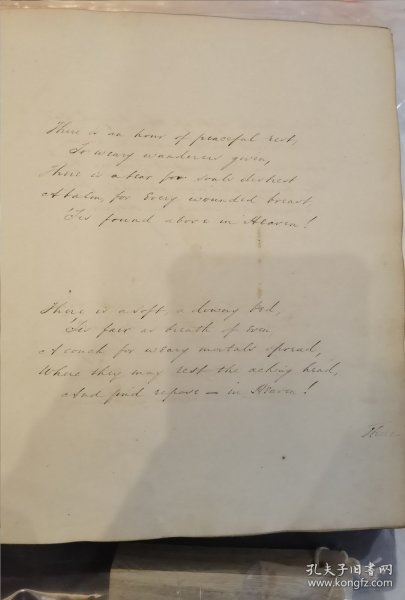 There is an hour of peaceful rest,
To weary wanderers given,
There is a tear for souls distrest
A balm, for Every wounded breast
'Tis found above in Heaven!
There is a soft, a downy bed,
'Tis fair as breath of Even
A couch for weary mortals spread,
Where they may rest the aching head,
And find repose — in Heaven!
There
孔夫子旧书网
www.kongfz.com